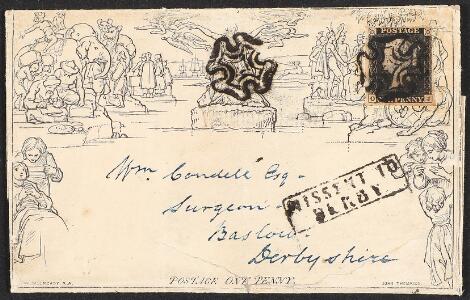 POSTAGE
ONE PENNY
Wm. Condell Esq-
Surgeon
Baslow
Derbyshire
MISSENT TO
DERBY
POSTAGE ONE PENNY.
W. MULREADY. R.A.
JOHN THOMPSON